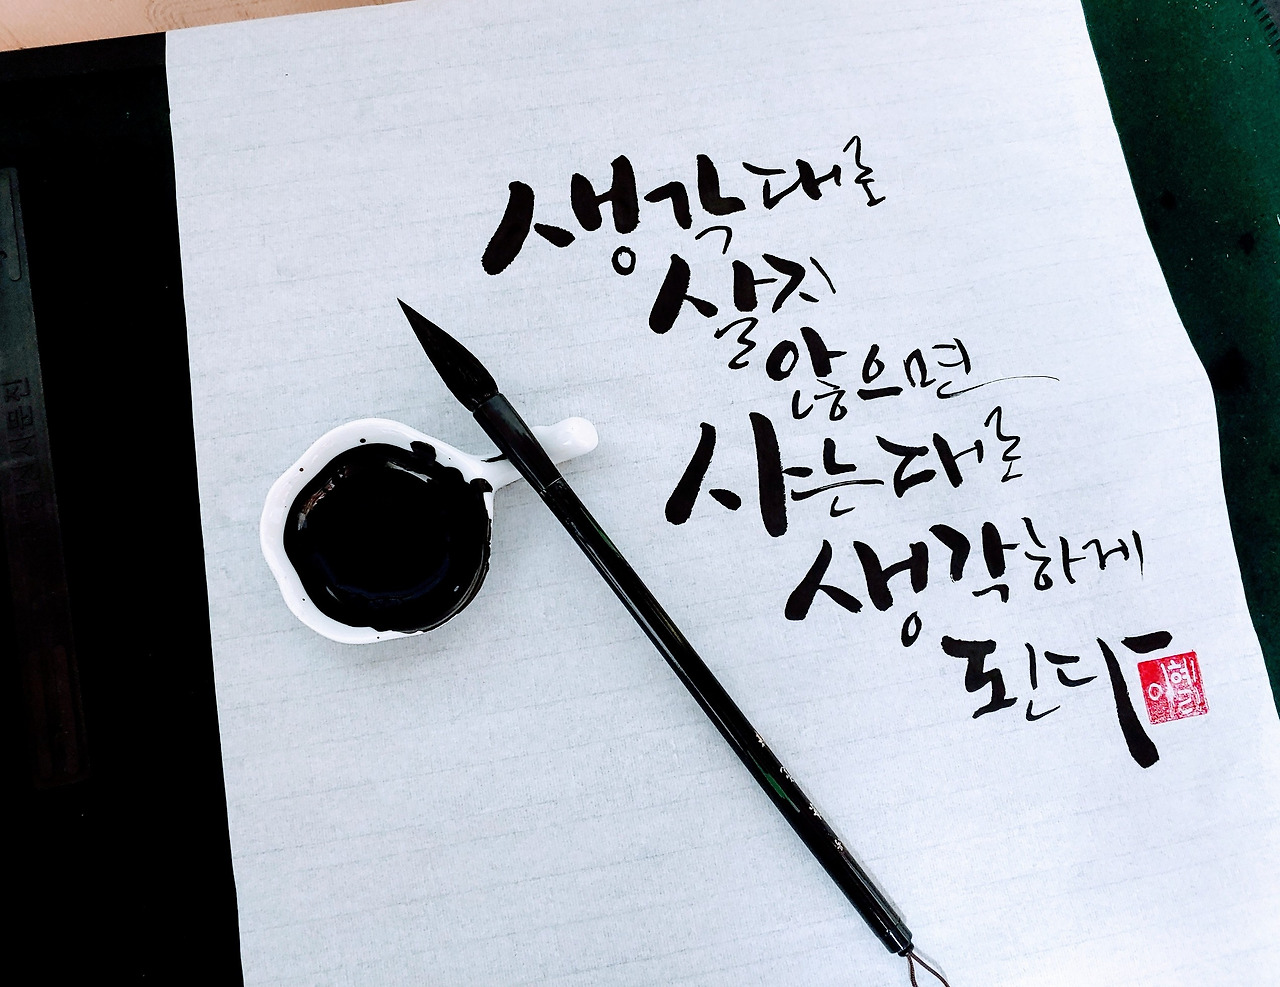 생각대로
살지
않으면
사는대로
생각하게
된다